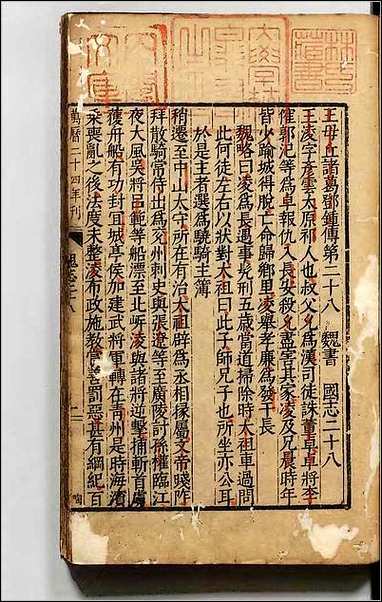 王毋丘諸葛鄧鍾傳第二十八　魏書　國志二十八
王凌字彥雲太原祁人也叔父允爲漢司徒誅董卓卓將李
傕郭汜等爲卓報仇入長安殺允盡害其家凌及兄晨時年
皆少踰城得脫亡命歸鄉里凌舉孝廉爲發干長
魏略曰凌爲長遇事髡刑五歲當道掃除時太祖車過問
此何徒左右以狀對太祖曰此子師兄子也所坐亦公耳
於是主者選爲驍騎主簿
稍遷至中山太守所在有治太祖辟爲丞相掾屬文帝踐阼
拜散騎常侍出爲兖州刺史與張遼等至廣陵討孫權臨江
夜大風吳將呂範等船漂至北岸凌與諸將逆擊捕斬首虜
獲舟船有功封宜城亭侯加建武將軍轉在青州是時海濱
乘喪亂之後法度未整凌布政施教賞善罰惡甚有綱紀百
萬曆二十四年刊
魏志二十八